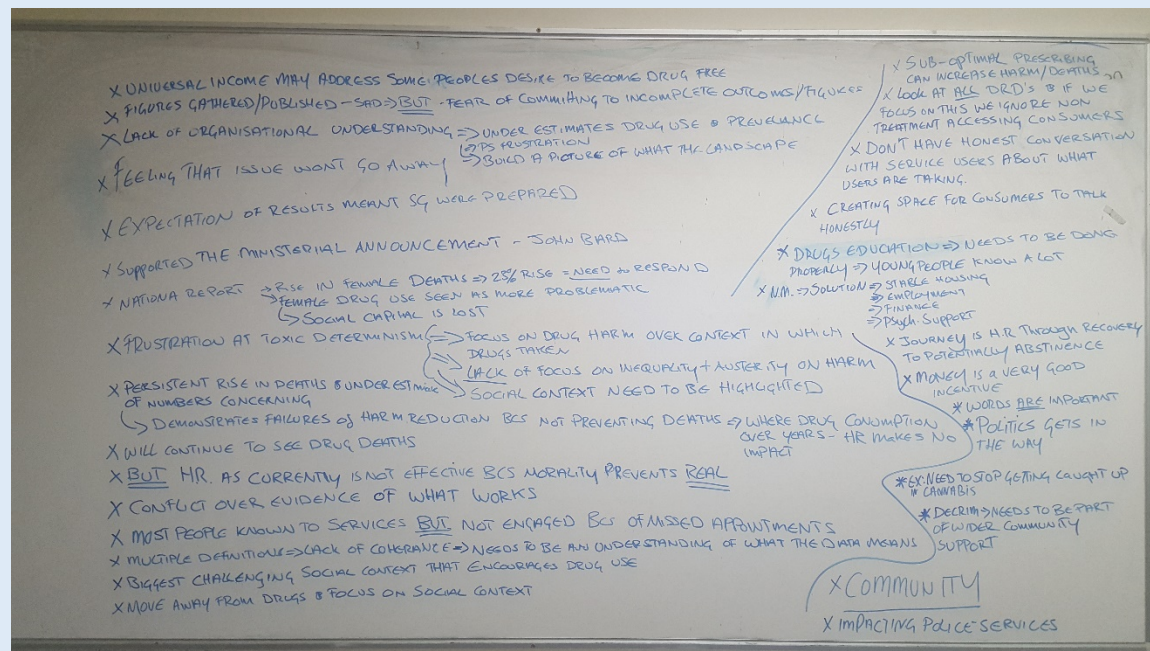 X UNIVERSAL INCOME MAY ADDRESS SOME PEOPLES DESIRE TO BECOME DRUG FREE
X FIGURES GATHERED/PUBLISHED – SAD => BUT - FEAR OF COMMITING TO INCOMPLETE OUTCOMES/FIGURES
X LACK OF ORGANISATIONAL UNDERSTANDING => UNDER ESTIMATES DRUG USE & PREVELANCE
↳ PS FRUSTRATION
=> BUILD A PICTURE OF WHAT THE LANDSCAPE
X FEELING THAT ISSUE WONT GO AWAY
X EXPECTATION OF RESULTS MEANT SG WERE PREPARED
X SUPPORTED THE MINISTERIAL ANNOUNCEMENT – JOHN BARD
X NATIONA REPORT → RISE IN FEMALE DEATHS => 25% RISE = NEED to RESPOND
↳ FEMALE DRUG USE SEEN AS MORE PROBLEMATIC
↳ SOCIAL CAPITAL IS LOST
X FRUSTRATION AT TOXIC DETERMINISM => FOCUS ON DRUG HARM OVER CONTEXT IN WHICH
DRUGS TAKEN
→ LACK OF FOCUS ON INEQUALITY + AUSTERITY ON HARM
↳ SOCIAL CONTEXT NEED TO BE HIGHLIGHTED
X PERSISTENT RISE IN DEATHS & UNDER ESTIMATE
OF NUMBERS CONCERNING
↳ DEMONSTRATES FAILURES of HARM REDUCTION BCS NOT PREVENTING DEATHS => WHERE DRUG CONUMPTION
OVER YEARS – HR MAKES NO
IMPACT
X WILL CONTINUE TO SEE DRUG DEATHS
X BUT HR. AS CURRENTLY IS NOT EFFECTIVE BCS MORALITY PREVENTS REAL
X CONFLICT OVER EVIDENCE OF WHAT WORKS
X MOST PEOPLE KNOWN TO SERVICES BUT NOT ENGAGED BCS OF MISSED APPOINTMENTS
X MULTIPLE DEFINITIONS => LACK OF COHERANCE => NEEDS TO BE AN UNDERSTANDING OF WHAT THE DATA MEANS
X BIGGEST CHALLENGING SOCIAL CONTEXT THAT ENCOURAGES DRUG USE
X MOVE AWAY FROM DRUGS & FOCUS ON SOCIAL CONTEXT
X SUB-OPTIMAL PRESCRIBING
CAN INCREASE HARM/DEATHS
X LOOK AT ALL DRD'S & IF WE
FOCUS ON THIS WE IGNORE NON
TREATMENT ACCESSING CONSUMERS
X DON'T HAVE HONEST CONVERSATION
WITH SERVICE USERS ABOUT WHAT
USERS ARE TAKING.
X CREATING SPACE FOR CONSUMERS TO TALK
HONESTLY
X DRUGS EDUCATION => NEEDS TO BE DONE
PROPERLY => YOUNG PEOPLE KNOW A LOT
X N.M. => SOLUTION => STABLE HOUSING
=> EMPLOYMENT
=> FINANCE
=> PSYCH. SUPPORT
X JOURNEY IS H.R THROUGH RECOVERY
TO POTENTIALLY ABSTINENCE
X MONEY IS A VERY GOOD
INCENTIVE
* WORDS ARE IMPORTANT
* POLITICS GETS IN
THE WAY
* EX: NEED TO STOP GETTING CAUGHT UP
IN CANNABIS
* DECRIM => NEEDS TO BE PART
OF WIDER COMMUNITY
SUPPORT
X COMMUNITY
X IMPACTING POLICE SERVICES